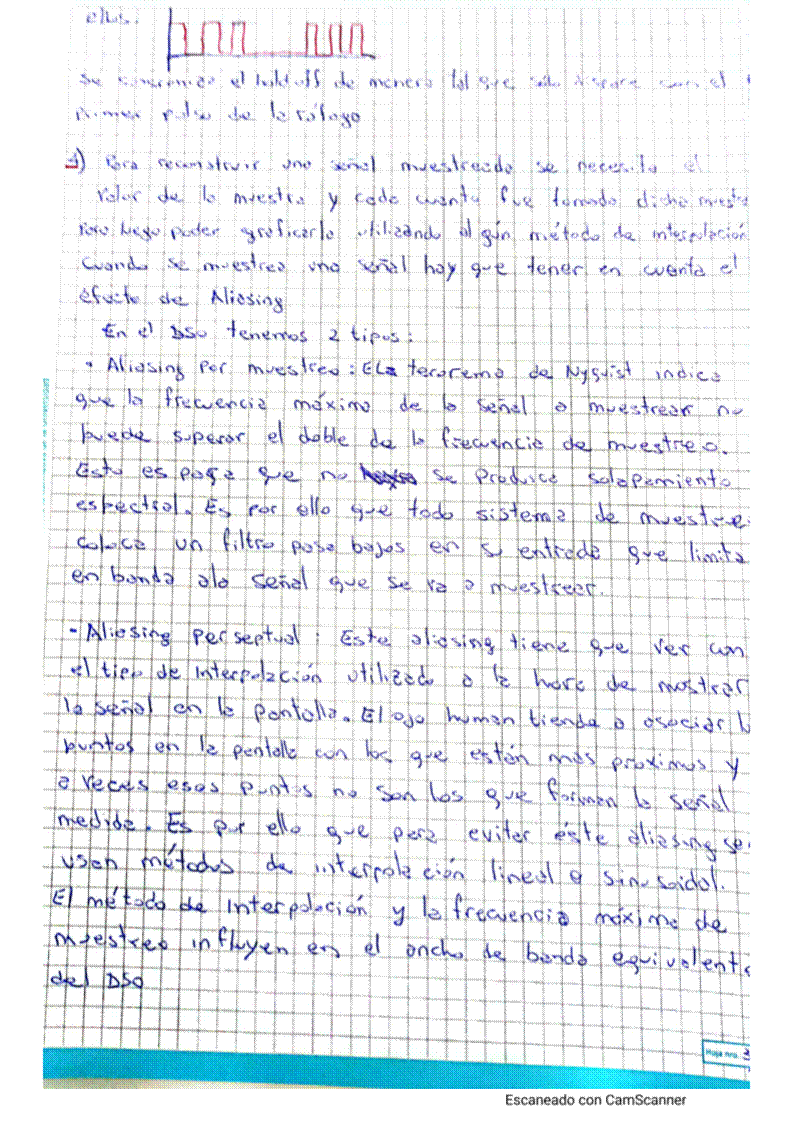 ellos.
se sincroniza el holdoff de manera tal que solo dispare con el
primer pulso de la ráfaga
4) Para reconstruir una señal muestreada se necesita el
valor de la muestra y cada cuanto fue tomada dicha muestra
Para luego poder graficarla utilizando algún método de interpolación
Cuando se muestrea una señal hay que tener en cuenta el
efecto de Aliasing
En el DSO tenemos 2 tipos:
• Aliasing Por muestreo: El teorema de Nyquist indica
que la frecuencia máxima de la señal a muestrear no
puede superar el doble de la frecuencia de muestreo.
Esto es para que no se produzca solapamiento
espectral. Es por ello que todo sistema de muestreo
coloca un filtro pasa bajos en su entrada que limita
en banda a la señal que se va a muestrear.
- Aliasing perseptual: Este aliasing tiene que ver con
el tipo de interpolación utilizado a la hora de mostrar
la señal en la pantalla. El ojo human tiende a asociar
puntos en la pantalla con los que están más proximos y
a veces esos puntos no son los que forman la señal
medida. Es por ello que para evitar éste aliasing se
usan métodos de interpolación lineal o sinusoidal.
El método de interpolación y la frecuencia máxima de
muestreo influyen en el ancho de banda equivalente
del DSO
Hoja nro. 3
Escaneado con CamScanner